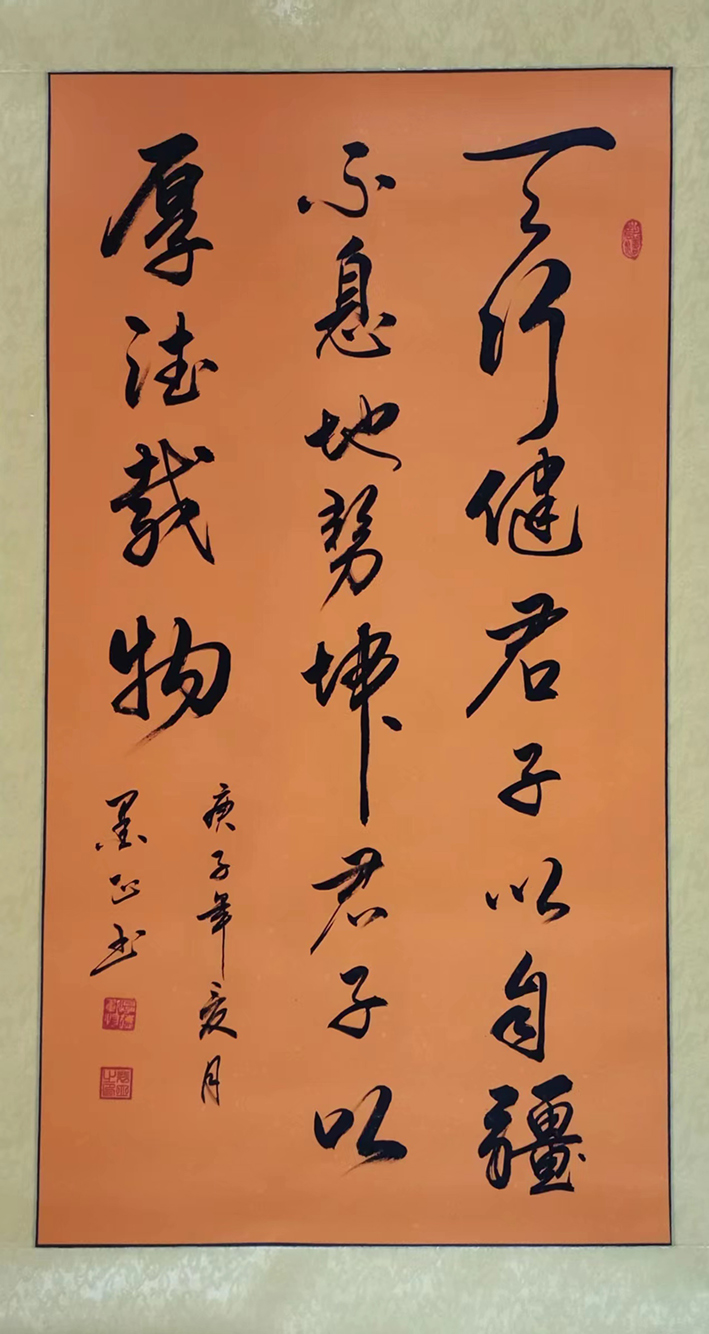 天行健君子以自彊
不息地势坤君子以
厚德载物
庚子年夏月
墨正书